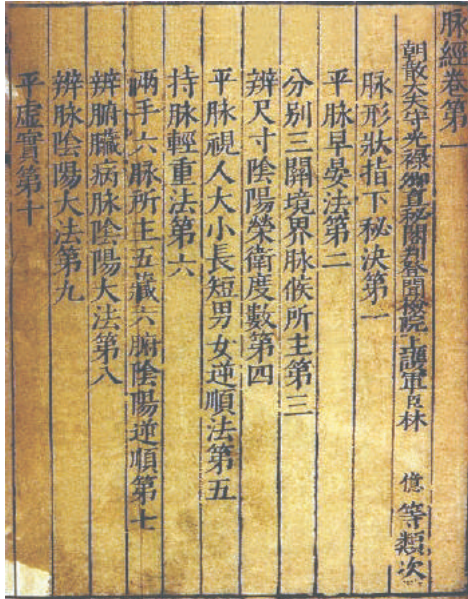 脉經卷第一
朝散大夫守光祿卿直秘閣判登聞檢院上護軍臣林　億　等類次
脉形狀指下秘決第一
平脉早晏法第二
分別三關境界脉候所主第三
辨尺寸陰陽榮衛度數第四
平脉視人大小長短男女逆順法第五
持脉輕重法第六
兩手六脉所主五藏六腑陰陽逆順第七
辨腑臓病脉陰陽大法第八
辨脉陰陽大法第九
平虛實第十